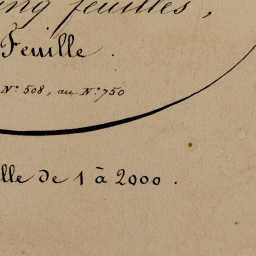 ing feuilles,
Feuille.
N.º 508, au N.º 750
lle de 1 à 2000.